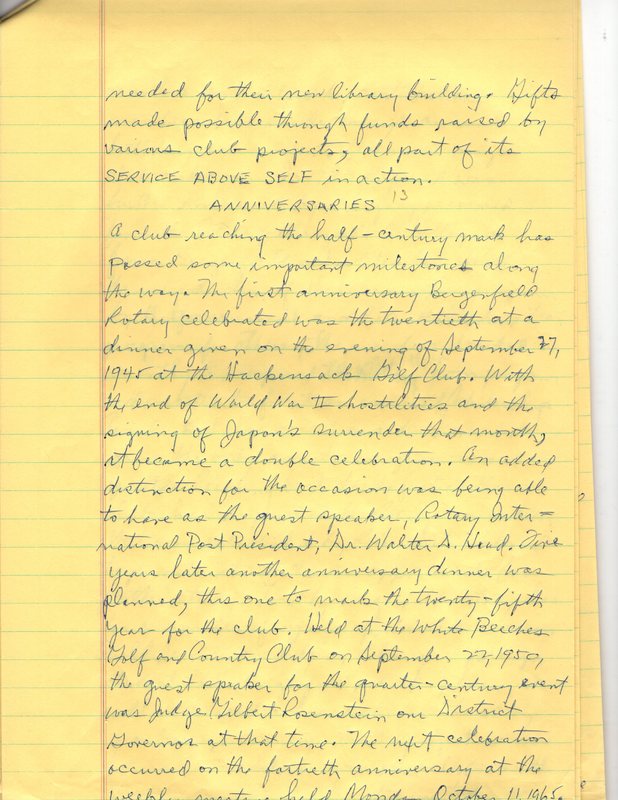 needed for their new library building. Gifts
made possible through funds raised by
various club projects, all part of its
SERVICE ABOVE SELF in action.
13
ANNIVERSARIES
A club reaching the half-century mark has
passed some important milestones along
the way. The first anniversary Bergenfield
Rotary celebrated was the twentieth at a
dinner given on the evening of September 27,
1945 at the Hackensack Golf Club. With
the end of World War II hostilities and the
signing of Japan's surrender that month,
it became a double celebration. An added
distinction for the occasion was being able
to have as the guest speaker, Rotary Inter=
national Past President, Dr. Walter D. Head. Five
years later another anniversary dinner was
planned, this one to mark the twenty-fifth
year for the club. Held at the White Beeches
Golf and Country Club on September 22, 1950,
the guest speaker for the quarter-century event
was Judge Gilbert Rosenstein our District
Governor at that time. The next celebration
occurred on the fortieth anniversary at the
weekly meeting held Monday October 11, 1965.